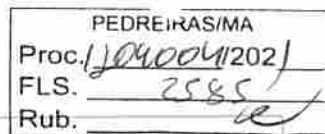 PEDREIRAS/MA
Proc. 1104004/2021
FLS. 2585
Rub.